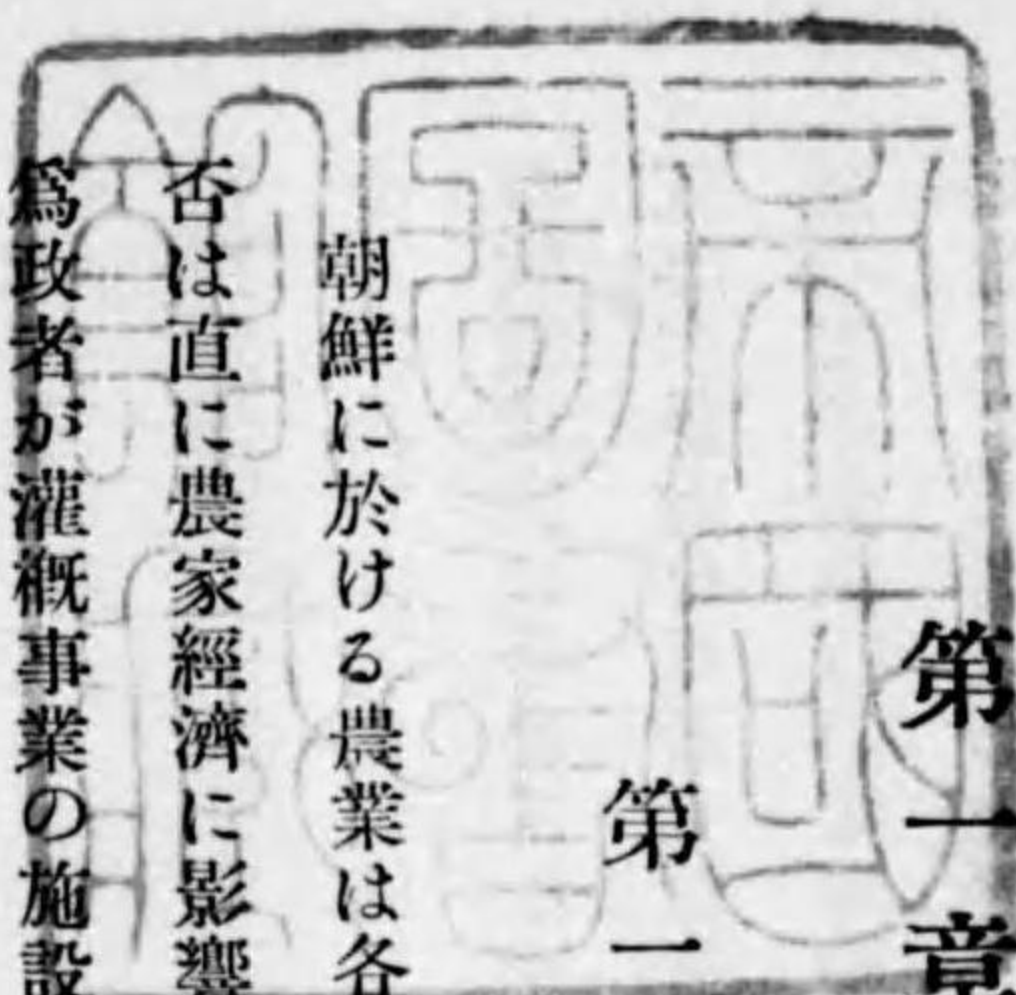 第一章
第一
朝鮮に於ける農業は各
否は直に農家經濟に影響
爲政者が灌漑事業の施設